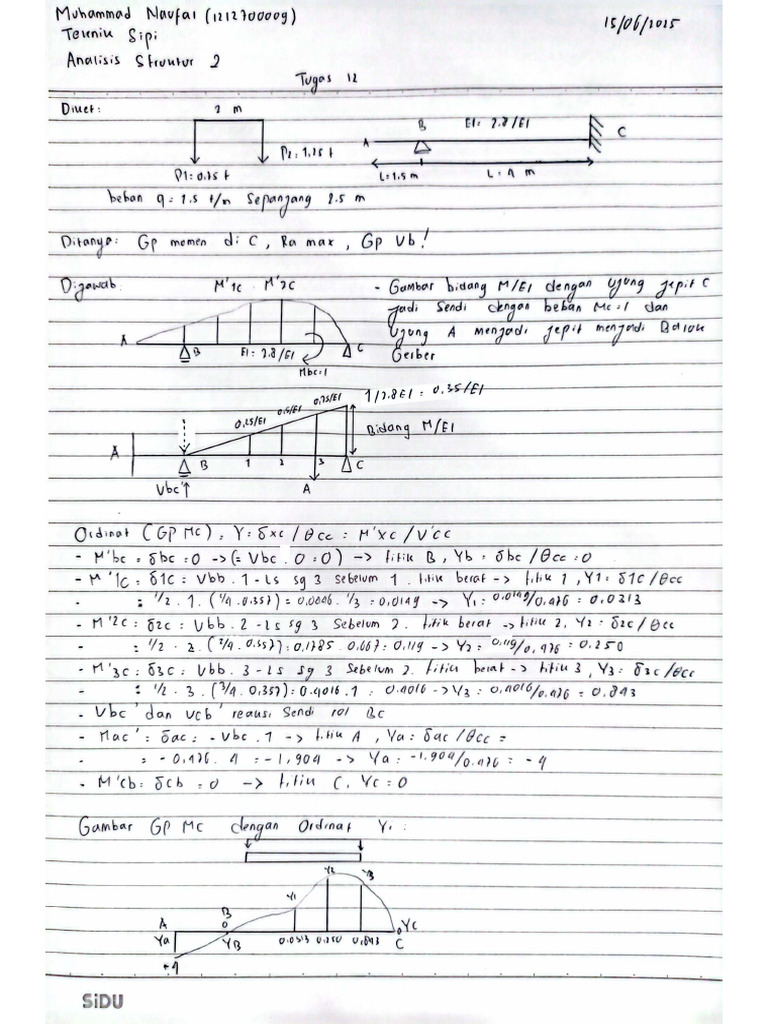 Muhammad Naufal (1212700009)
15/06/2025
Teknik Sipi
Analisis Struktur 2
Tugas 12
Diket:
2 m
P1 = 0.75 t
P2 = 1.25 t
A
B
EI = 2.8/EI
C
L = 1.5 m
L = 4 m
beban q = 1.5 t/m Sepanjang 2.5 m
Ditanya: Gp momen di C, Ra max, Gp Vb!
Dijawab.
M'1c . M'2c
A
B
EI = 2.8/EI
C
Mbc=1
- Gambar bidang M/EI dengan ujung jepit C
jadi Sendi dengan beban Mc=1 dan
Ujung A menjadi jepit menjadi Balok
Gerber
0.25/EI
0.5/EI
0.75/EI
1/2.8EI = 0.35/EI
Bidang M/EI
A
B
1
2
3
C
Vbc'
A
Ordinat (GP Mc), Y = δxc / θcc = M'xc / V'cc
- M'bc = δbc = 0 -> (= Vbc . 0 = 0) -> titik B, Yb = δbc / θcc = 0
- M'1c = δ1c = Vbb . 1 - Ls sg 3 Sebelum 1 . titik berat -> titik 1, Y1 = δ1c / θcc
- = 1/2 . 1 . (1/4 . 0.357) = 0.0446 . 1/3 = 0.0149 -> Y1 = 0.0149/0.476 = 0.0313
- M'2c = δ2c = Vbb . 2 - Ls sg 3 Sebelum 2 . titik berat -> titik 2, Y2 = δ2c / θcc
- = 1/2 . 2 . (2/4 . 0.357) = 0.1785 . 0.667 = 0.119 -> Y2 = 0.119/0.476 = 0.250
- M'3c = δ3c = Vbb . 3 - Ls sg 3 Sebelum 2 . titik berat -> titik 3, Y3 = δ3c / θcc
- = 1/2 . 3 . (3/4 . 0.357) = 0.4016 . 1 = 0.4016 -> Y3 = 0.4016/0.476 = 0.843
- Vbc' dan Vcb' reaksi Sendi rol Bc
- Mac' = δac = - Vbc . 1 -> titik A, Ya = δac / θcc =
- = - 0.476 . 4 = -1,904 -> Ya = -1,904/0.476 = -4
- M'cb = δcb = 0 -> titik C, Yc = 0
Gambar GP Mc dengan Ordinat Yi :
A
Ya
B
0
YB
Y1
Y2
Y3
0.0313
0.250
0.843
0
Yc
C
-4
SiDU